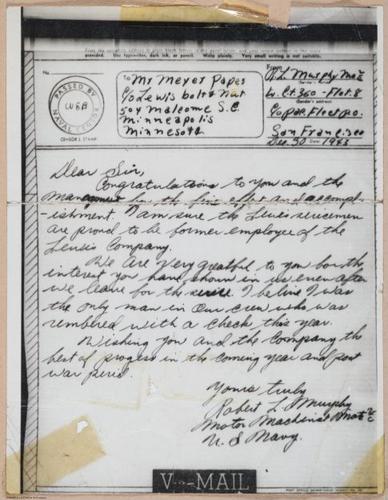 provided. Use typewriter, dark ink, or pencil. Write plainly. Very small writing is not suitable.
No.
To
From
Mr Meyer Papes
R.L. Murphy
c/o Lewis bolt & Nut
Lt. Ct. 360 - Flot. 8
504 Malcome S.E.
c/o P.O.
Minneapolis
San Francisco
Minnesota
Dec 30 1943
PASSED BY
NAVAL CENSOR
(CENSOR'S STAMP)
(Sender's address)
(Date)
Dear Sir,
Congratulations to you and the
for the fine effort and accompl-
-ishment. I am sure the Lewis servicemen
are proud to be former employee of the
Lewis Company.
We are very greatful to you for the
interest you have shown in us even after
we leave for the I belive I was
the only man in our crew who was
rembered with a check this year.
Wishing you and the Company the
best of progress in the coming year and post
war period.
Yours truly
Robert L. Murphy
Motor Machinist Mate
U.S Navy.
V···-MAIL